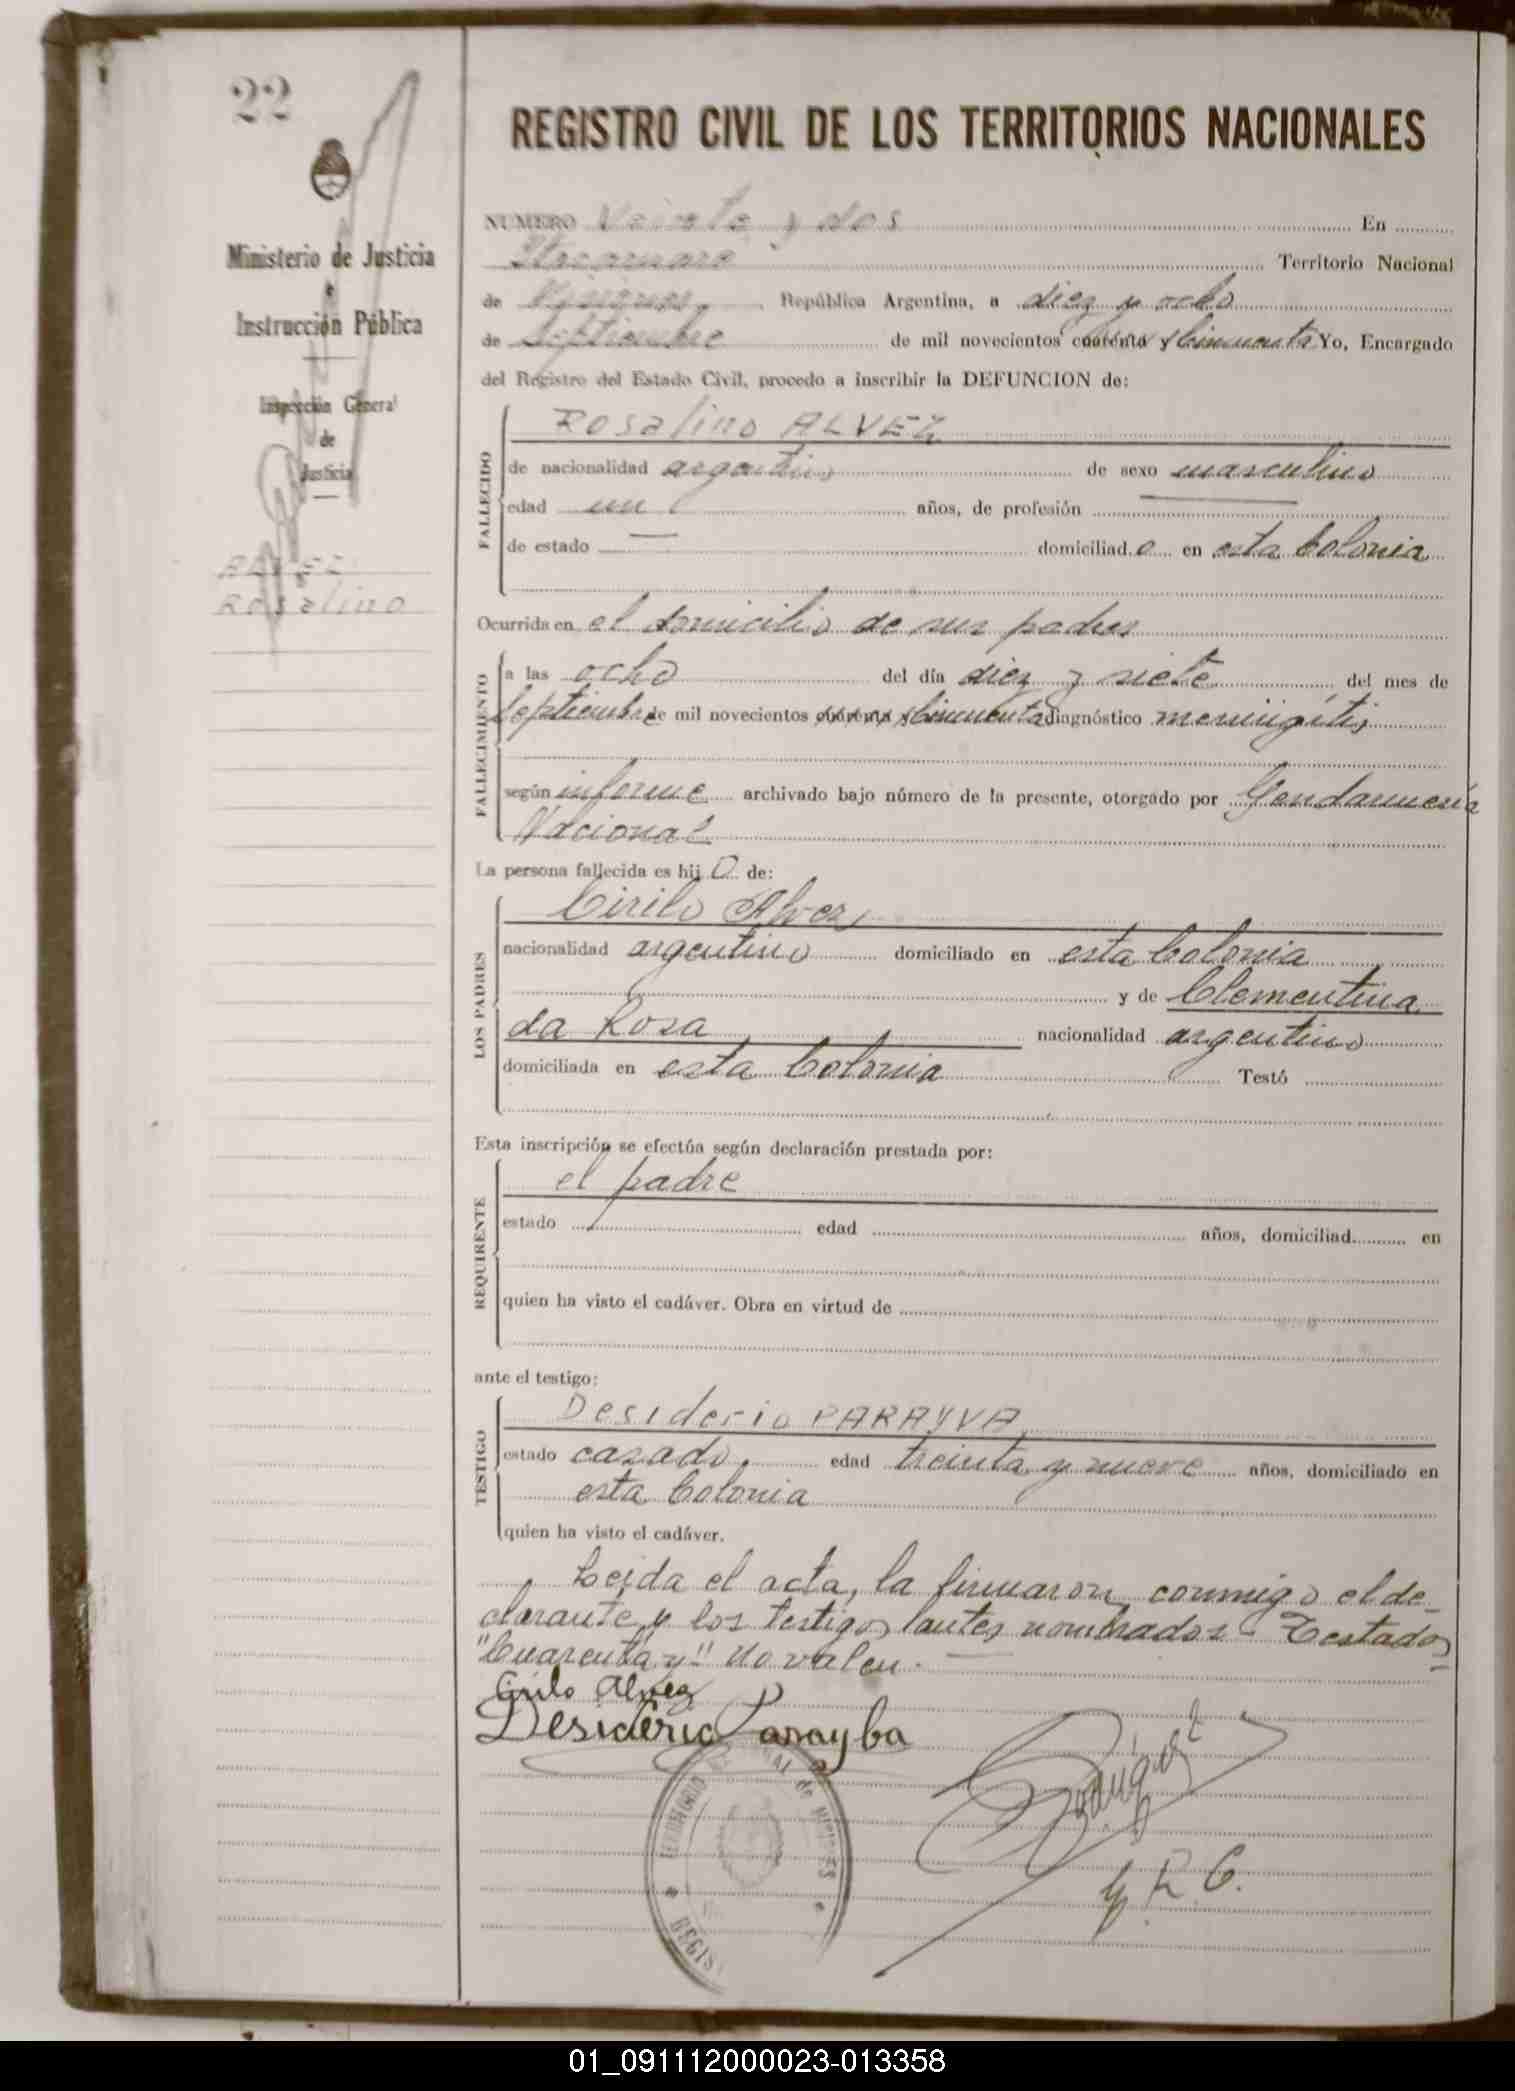 22
REGISTRO CIVIL DE LOS TERRITORIOS NACIONALES
Ministerio de Justicia
e
Instrucción Pública
Inspección General
de
Justicia
ALVEZ
Rosalino
NUMERO Veinte y dos En
Itacaruaré Territorio Nacional
de Misiones, República Argentina, a diez y ocho
de Septiembre de mil novecientos cuarenta y Cincuenta Yo, Encargado
del Registro del Estado Civil, procedo a inscribir la DEFUNCION de:
FALLECIDO
Rosalino ALVEZ
de nacionalidad argentino de sexo masculino
edad un años, de profesión
de estado domiciliad o en esta Colonia
Ocurrida en el domicilio de sus padres
FALLECIMIENTO
a las ocho del día diez y siete del mes de
Septiembre de mil novecientos cuarenta y Cincuenta diagnóstico meningítis
según informe archivado bajo número de la presente, otorgado por Gendarmería
Nacional
La persona fallecida es hij o de:
LOS PADRES
Cirilo Alvez,
nacionalidad argentino domiciliado en esta Colonia
y de Clementina
da Rosa nacionalidad argentino
domiciliada en esta Colonia Testó
Esta inscripción se efectúa según declaración prestada por:
REQUIRENTE
el padre
estado edad años, domiciliad en
quien ha visto el cadáver. Obra en virtud de
ante el testigo:
TESTIGO
Desiderio PARAYVA
estado casado, edad treinta y nueve años, domiciliado en
esta Colonia
quien ha visto el cadáver.
Leida el acta, la firmaron conmigo el de-
clarante y los testigos antes nombrados - Testados
"Cuarenta y" no valen. -
Cirilo Alvez
Desiderio Parayba
TERRITORIO NACIONAL de MISIONES
REGIST
E. R. C.
01_091112000023-013358